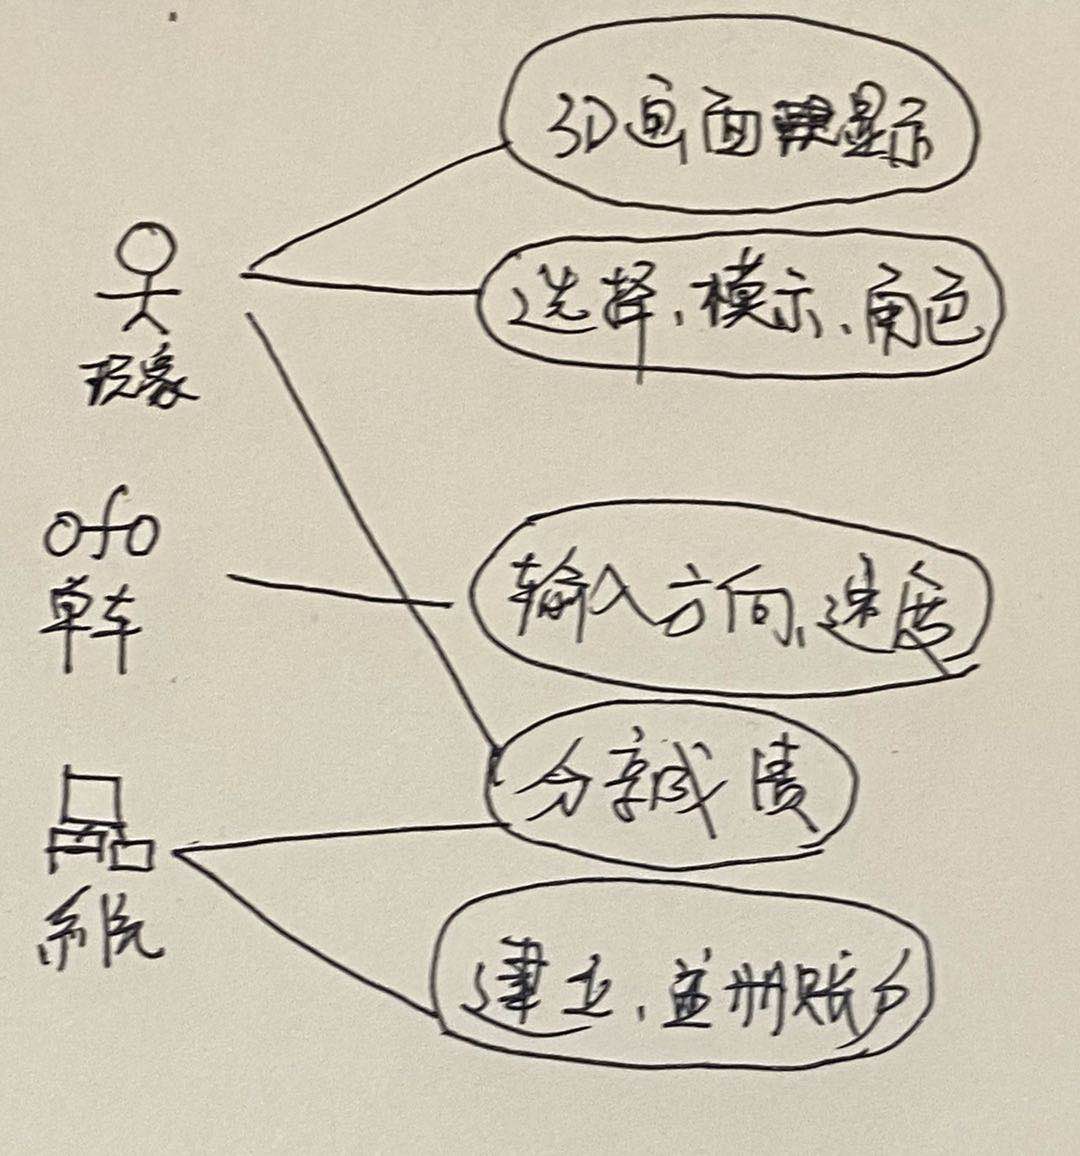 3D画面显示
选择、模示、角色
现象
ofo
单车
输入方向、速度
分享成绩
系统
建立、註册账户